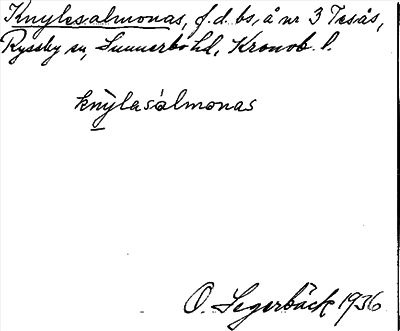 Knylesalmonas, f.d. bs, å nr 3 Tesås,
Ryssby sn, Sunnerbo hd, Kronob. l.
knỳlasálmonas
O. Segerbäck 1936